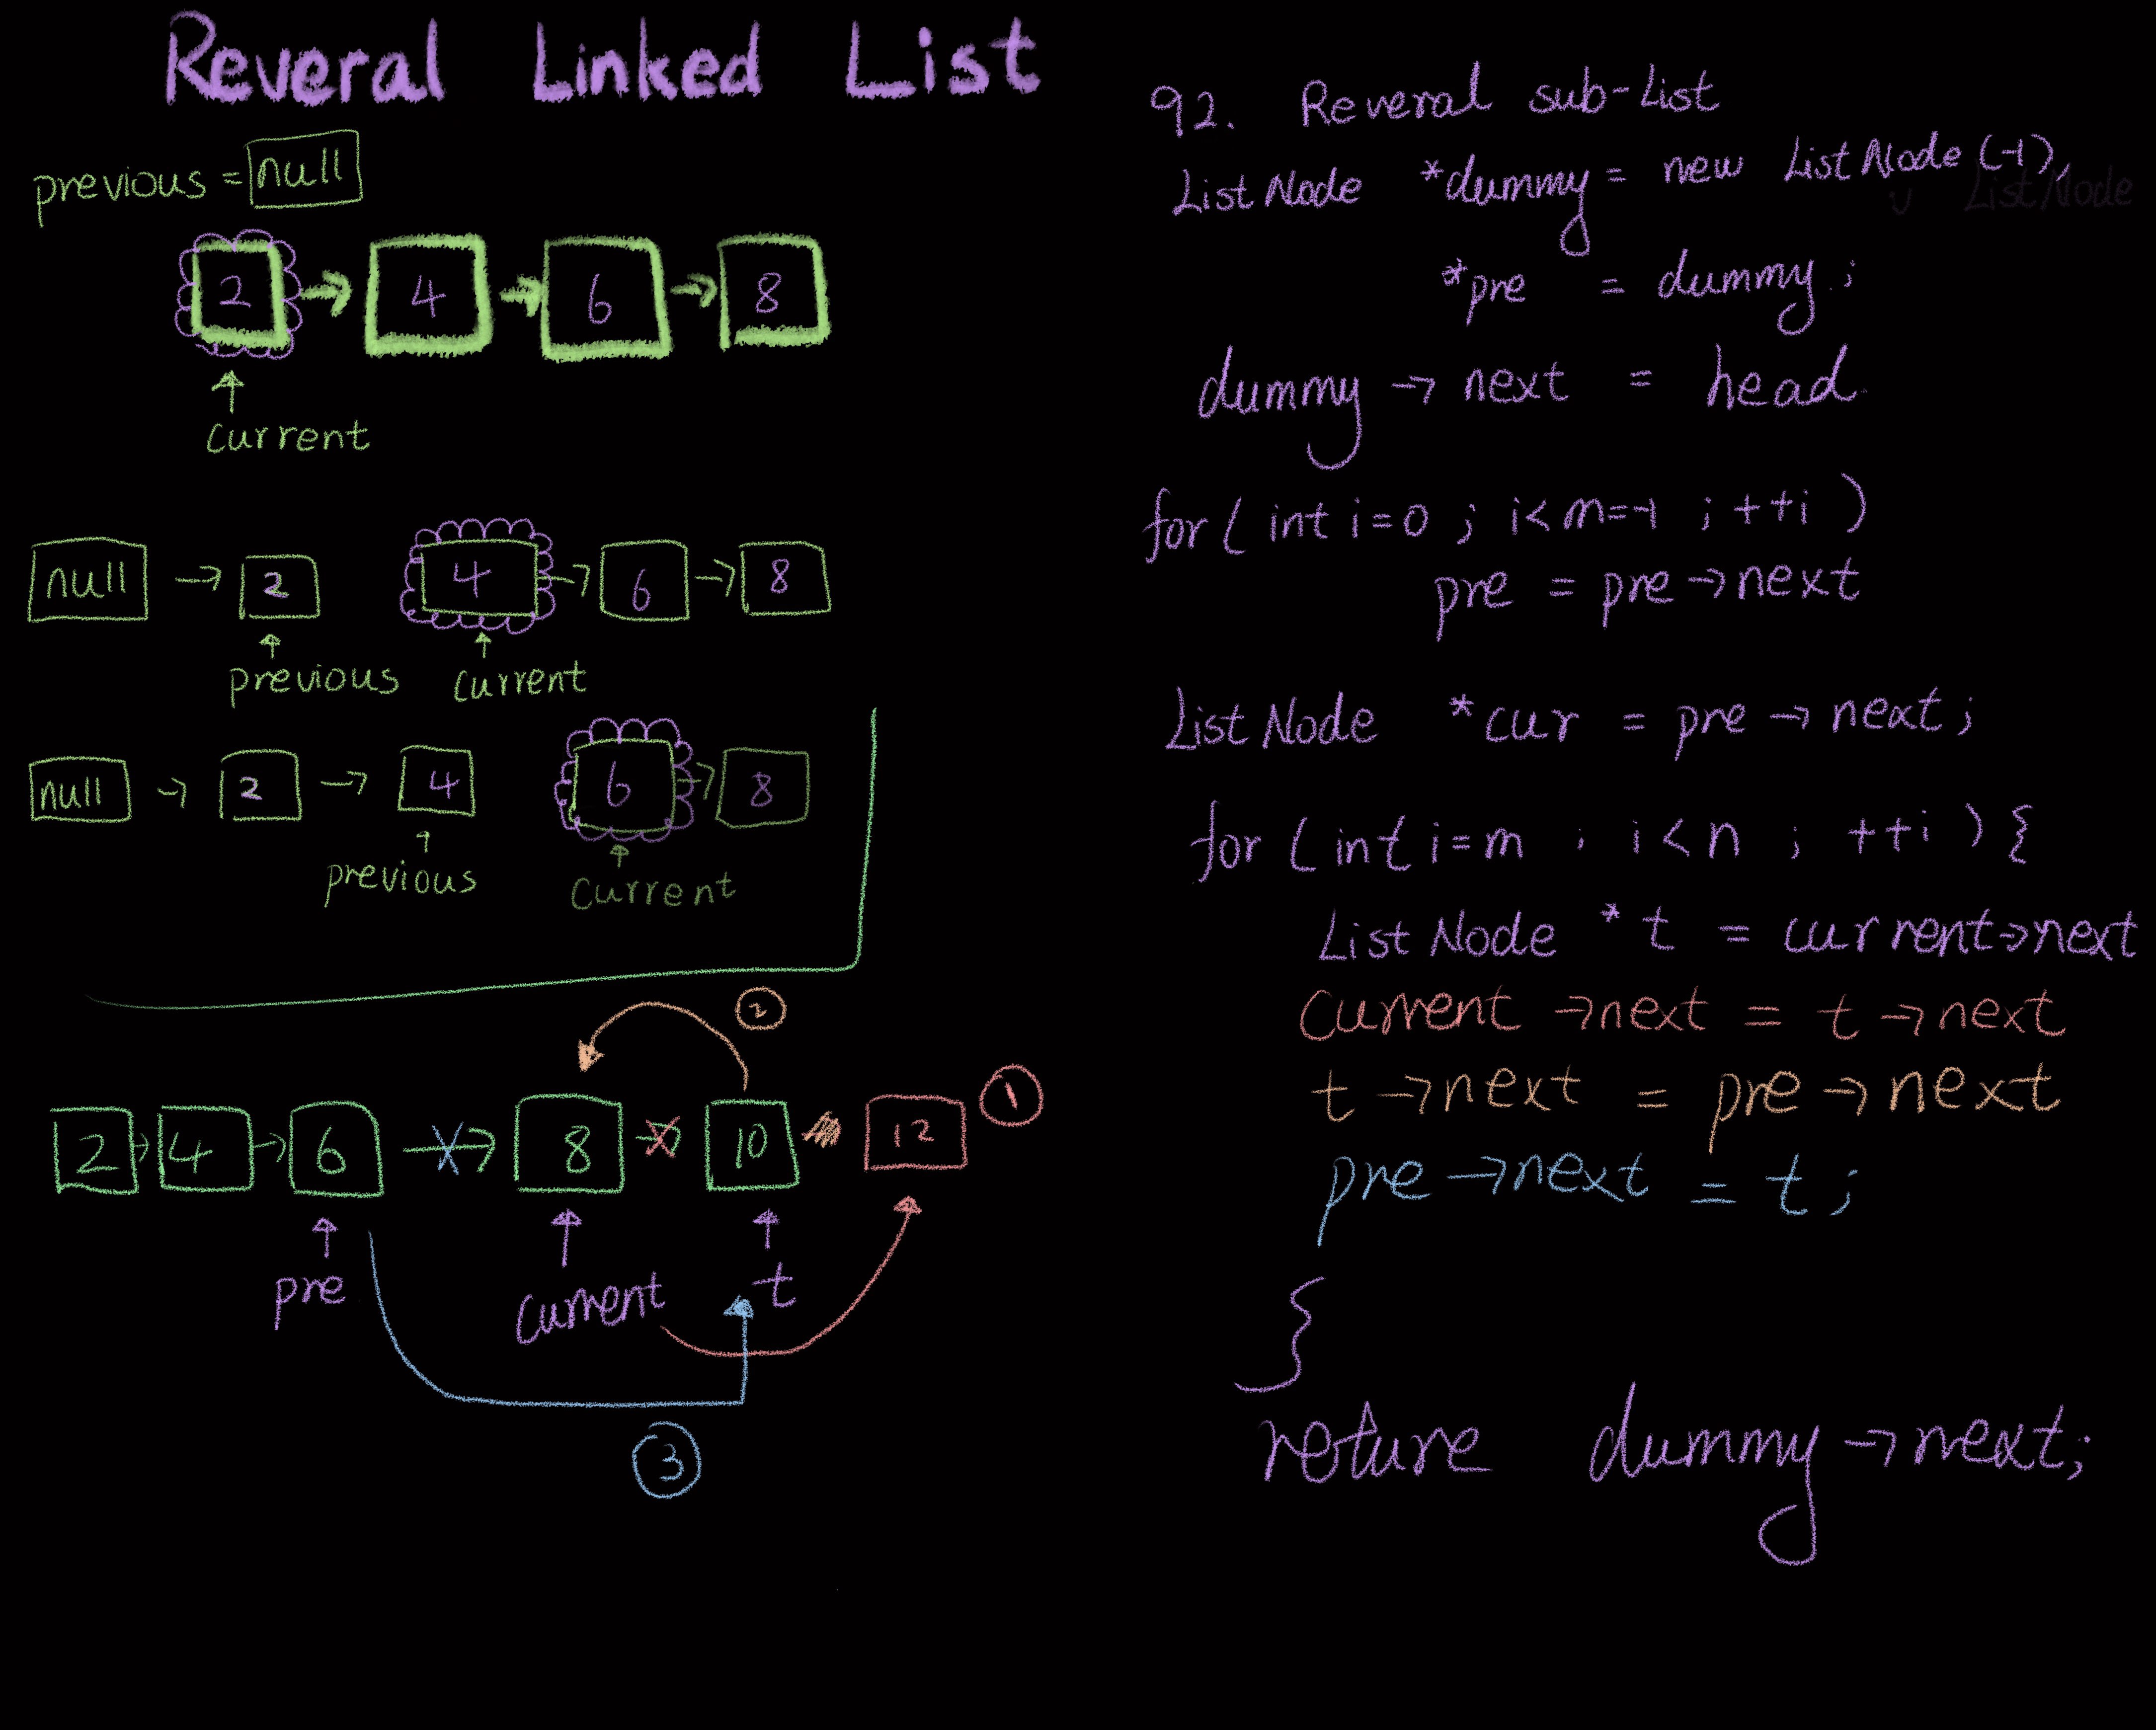 Reveral Linked List
previous = null
2 → 4 → 6 → 8
↑
current
null → 2 4 → 6 → 8
↑ ↑
previous current
null → 2 → 4 6 → 8
↑ ↑
previous current
②
2 → 4 → 6 → 8 → 10 12 ①
↑ ↑ ↑
pre current t
③
92. Reveral sub-List
ListNode *dummy = new ListNode(-1),
ListNode
*pre = dummy;
dummy → next = head
for( int i=0 ; i< m=-1 ; ++i )
pre = pre → next
ListNode *cur = pre → next;
for ( int i=m ; i<n ; ++i ) {
ListNode * t = current→next
Current →next = t →next
t →next = pre → next
pre →next = t ;
}
reture dummy →next;